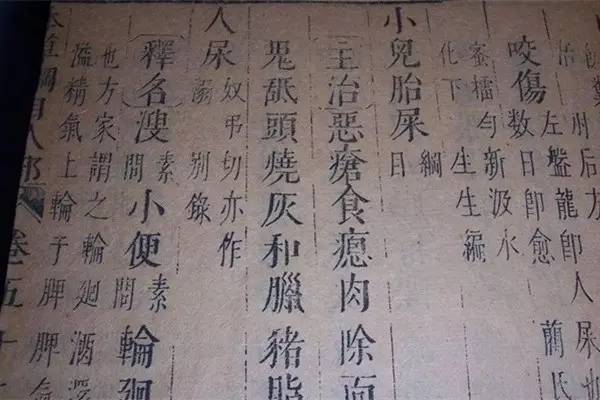 州后方
治
咬傷
左盤龍卽人屎也
數日卽愈 藺氏
蜜擂勻新汲水
化下 生生編
小兒胎屎 綱目
主治惡瘡食瘜肉除面
鬼舐頭燒灰和臘豬脂
人尿 奴弔切亦作
溺 別錄
釋名溲 素問 小便 素問 輪廻
也方家謂之輪廻酒
精氣上輪于脾脾氣
本草綱目人部 卷五十